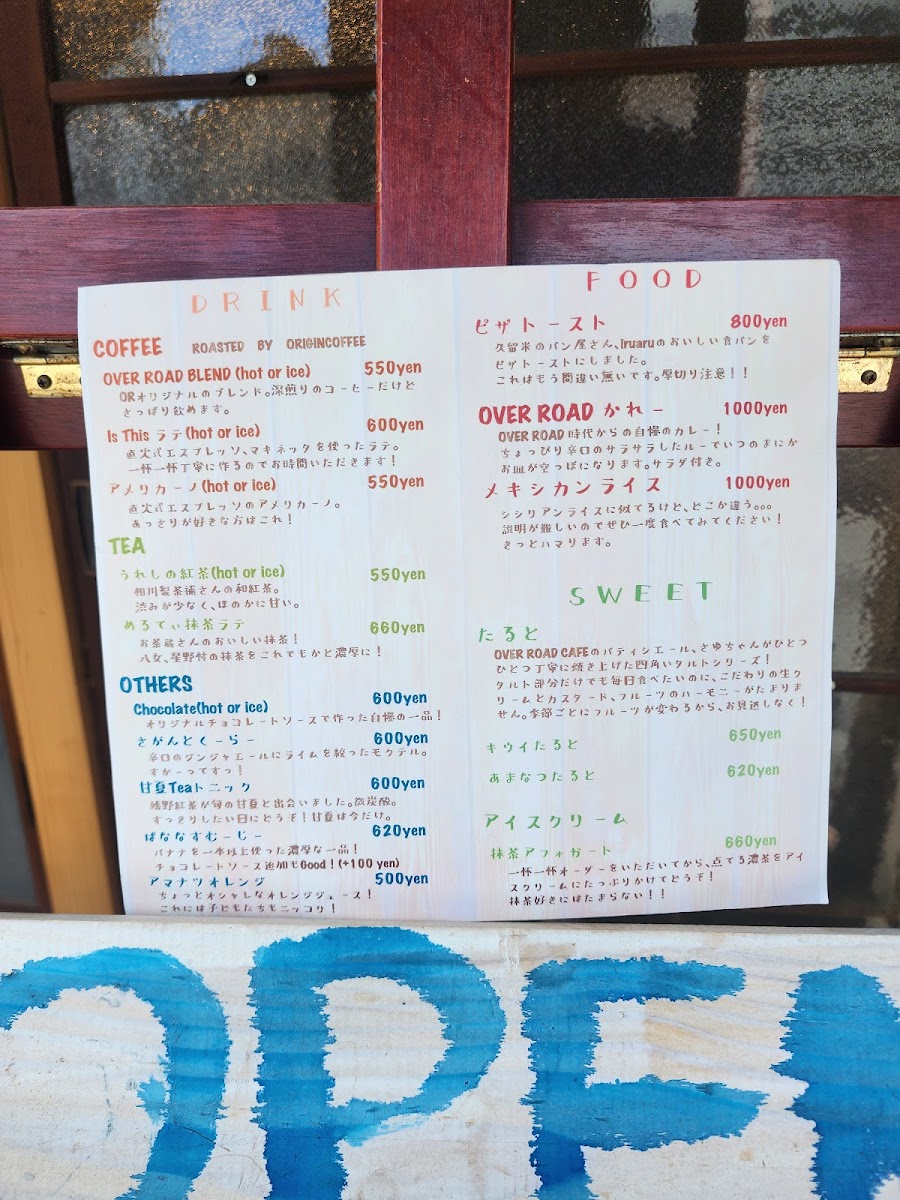 DRINK
COFFEE ROASTED BY ORIGINCOFFEE
OVER ROAD BLEND (hot or ice) 550yen
ORオリジナルのブレンド。深煎りのコーヒーだけど
さっぱり飲めます。
Is This ラテ(hot or ice) 600yen
直火式エスプレッソ、マキネッタを使ったラテ。
一杯一杯丁寧に作るのでお時間いただきます!
アメリカーノ(hot or ice) 550yen
直火式エスプレッソのアメリカーノ。
あっさりが好きな方はこれ!
TEA
うれしの紅茶(hot or ice) 550yen
相川製茶舗さんの和紅茶。
渋みが少なく、ほのかに甘い。
めるてぃ抹茶ラテ 660yen
お茶蔵さんのおいしい抹茶!
八女、星野村の抹茶をこれでもかと濃厚に!
OTHERS
Chocolate(hot or ice) 600yen
オリジナルチョコレートソースで作った自慢の一品!
さがんとくーらー 600yen
辛口のジンジャエールにライムを絞ったモクテル。
すかーってすっ!
甘夏Teaトニック 600yen
嬉野紅茶が旬の甘夏と出会いました。微炭酸。
すっきりしたい日にどうぞ!甘夏は今だけ。
ばななすむーじー 620yen
バナナを一本以上使った濃厚な一品!
チョコレートソース追加でGood!(+100 yen)
アマナツオレンジ 500yen
ちょっとオシャレなオレンジジュース!
これには子どもたちもニッコリ!
FOOD
ピザトースト 800yen
久留米のパン屋さん、iruaruのおいしい食パンを
ピザトーストにしました。
これはもう間違い無いです。厚切り注意!!
OVER ROAD かれー 1000yen
OVER ROAD 時代からの自慢のカレー!
ちょっぴり辛口のサラサラしたルーでいつのまにか
お皿が空っぽになります。サラダ付き。
メキシカンライス 1000yen
シシリアンライスに似てるけど、どこか違う。。。
説明が難しいのでぜひ一度食べてみてください!
きっとハマります。
SWEET
たると
OVER ROAD CAFEのパティシエール、さゆちゃんがひとつ
ひとつ丁寧に焼き上げた四角いタルトシリーズ!
タルト部分だけでも毎日食べたいのに、こだわりの生ク
リームとカスタード、フルーツのハーモニーがたまりま
せん。季節ごとにフルーツが変わるから、お見逃しなく!
キウイたると 650yen
あまなつたると 620yen
アイスクリーム
抹茶アフォガート 660yen
一杯一杯オーダーをいただいてから、点てる濃茶をアイ
スクリームにたっぷりかけてどうぞ!
抹茶好きにはたまらない!!
OPEN